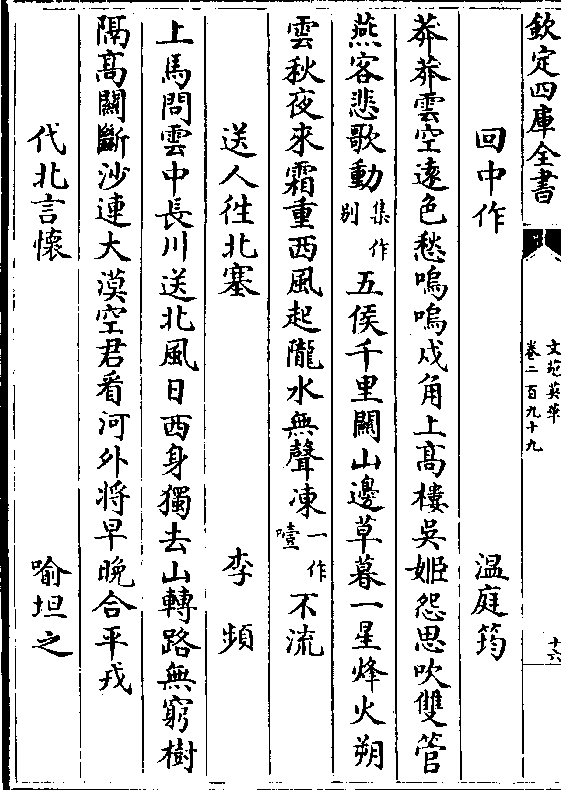 欽定四庫全書
文苑英華
卷二百九十九
十六
回中作 温庭筠
莽莽雲空逺色愁嗚嗚戍角上髙樓吳姬怨思吹雙管
燕客悲歌動集作别五侯千里闗山邊草暮一星烽火朔
雲秋夜來霜重西風起隴水無聲凍一作噎不流
送人徃北塞 李頻
上馬問雲中長川送北風日西身獨去山轉路無窮樹
隔髙闗斷沙連大漠空君看河外将早晚合平戎
代北言懷 喻坦之